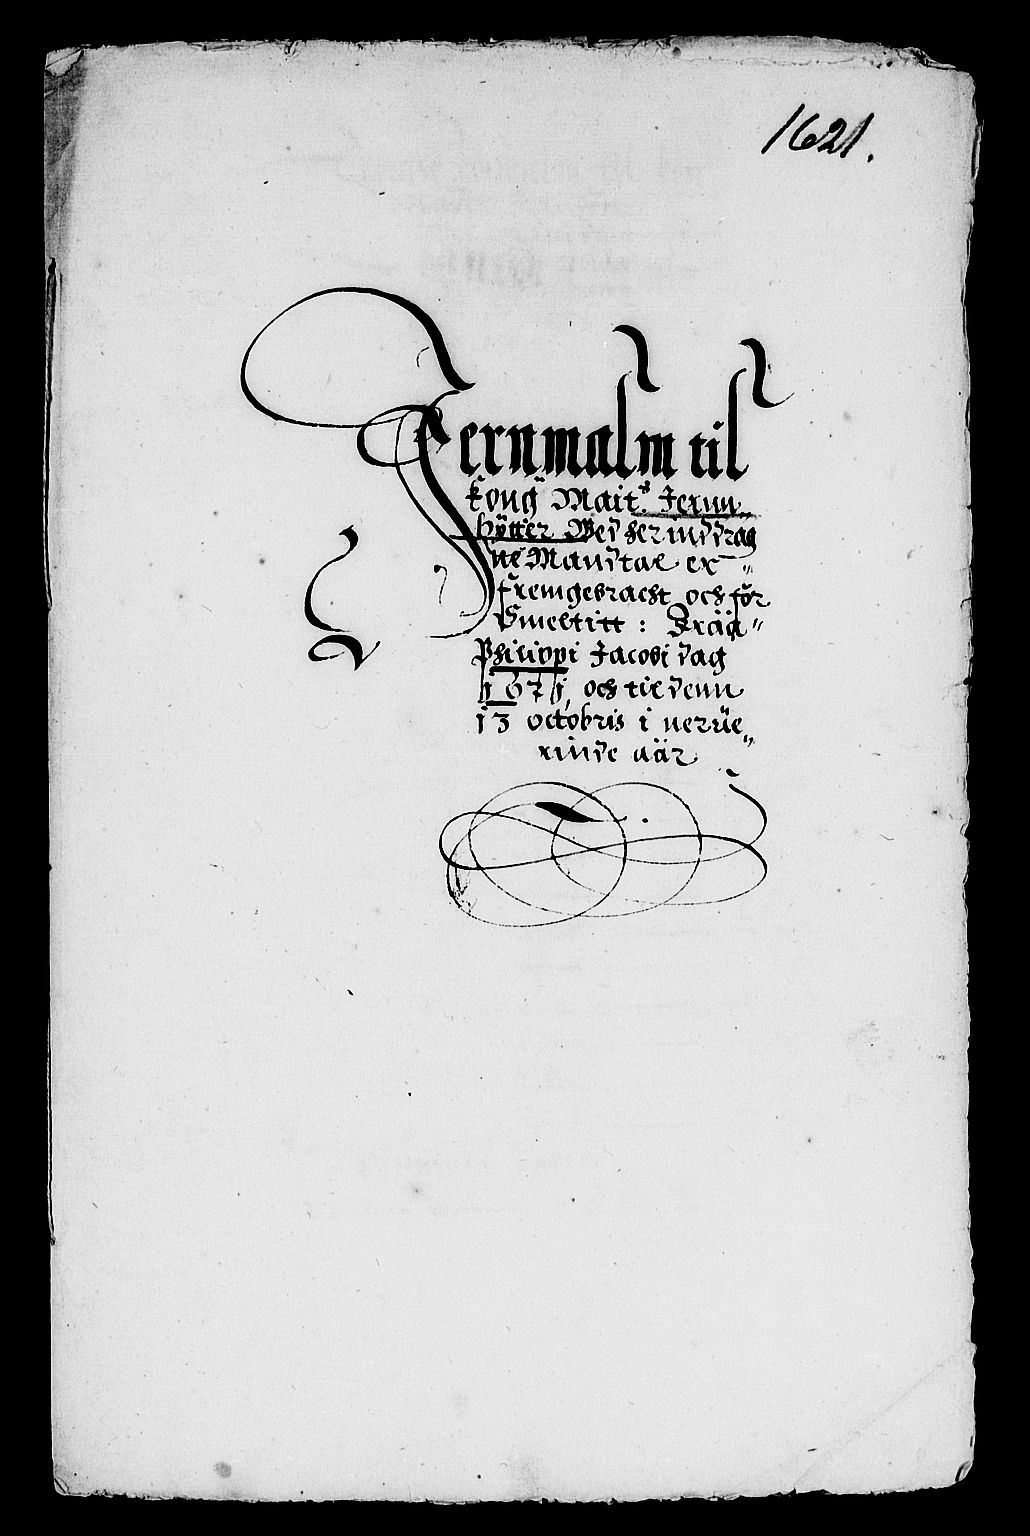 1621.
Jernmalm til
kong Mait.s Jernn„
hÿtter Wed her inddrag
ne Mandtal er „
fremgebracht och för
Smeltitt : Fräa„
Philippi Jacobi dag
j 621, och til denn
13 octobris i nerüe„
rinde aär